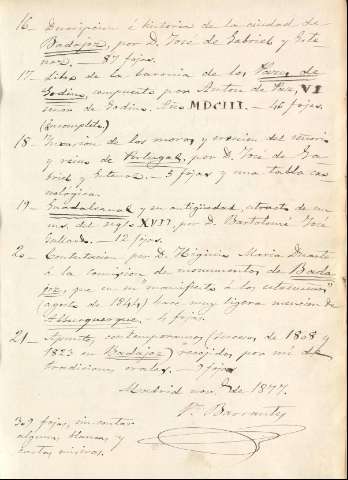 16 - Descripcion é historia de la ciudad de
Badajoz, por D. José de Gabriel y Este
noz. - 87 fojas.
17 - Libro de la baronia de los Paez de
Godino, compuesto por Anton de Paz, VI
señor de Godino. Año MDCIII. - 46 fojas.
(Incompleto.)
18 - Invasion de los moros y creacion del condado
y reino de Portugal, por D. José de Ga
briel y Estenoz. - 5 fojas y una tabla cro
nológica.
19 - Guadalcanal y su antigüedad, extracto de un
ms. del siglo XVII, por D. Bartolomé José
Collado. - 12 fojas.
20 - Contestacion por D. Higinio Maria Duarte
á la comision de monumentos de Bada
joz, que en su "manifiesto á los extremeños"
(agosto de 1844) hace muy ligera mencion de
Alburquerque. - 4 fojas.
21 - Apuntes contemporaneos (sucesos de 1808 y
1823 en Badajoz) recojidos por mi de
tradiciones orales. - 9 fojas
Madrid nov.e de 1877.
V. Barrantes
309 fojas, sin contar
algunas blancas, y
hartas